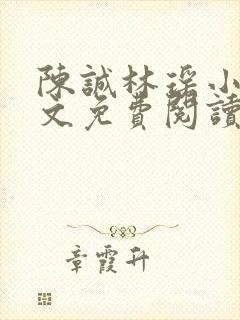 陳誠林瑤小
文免費閱讀
章霞升